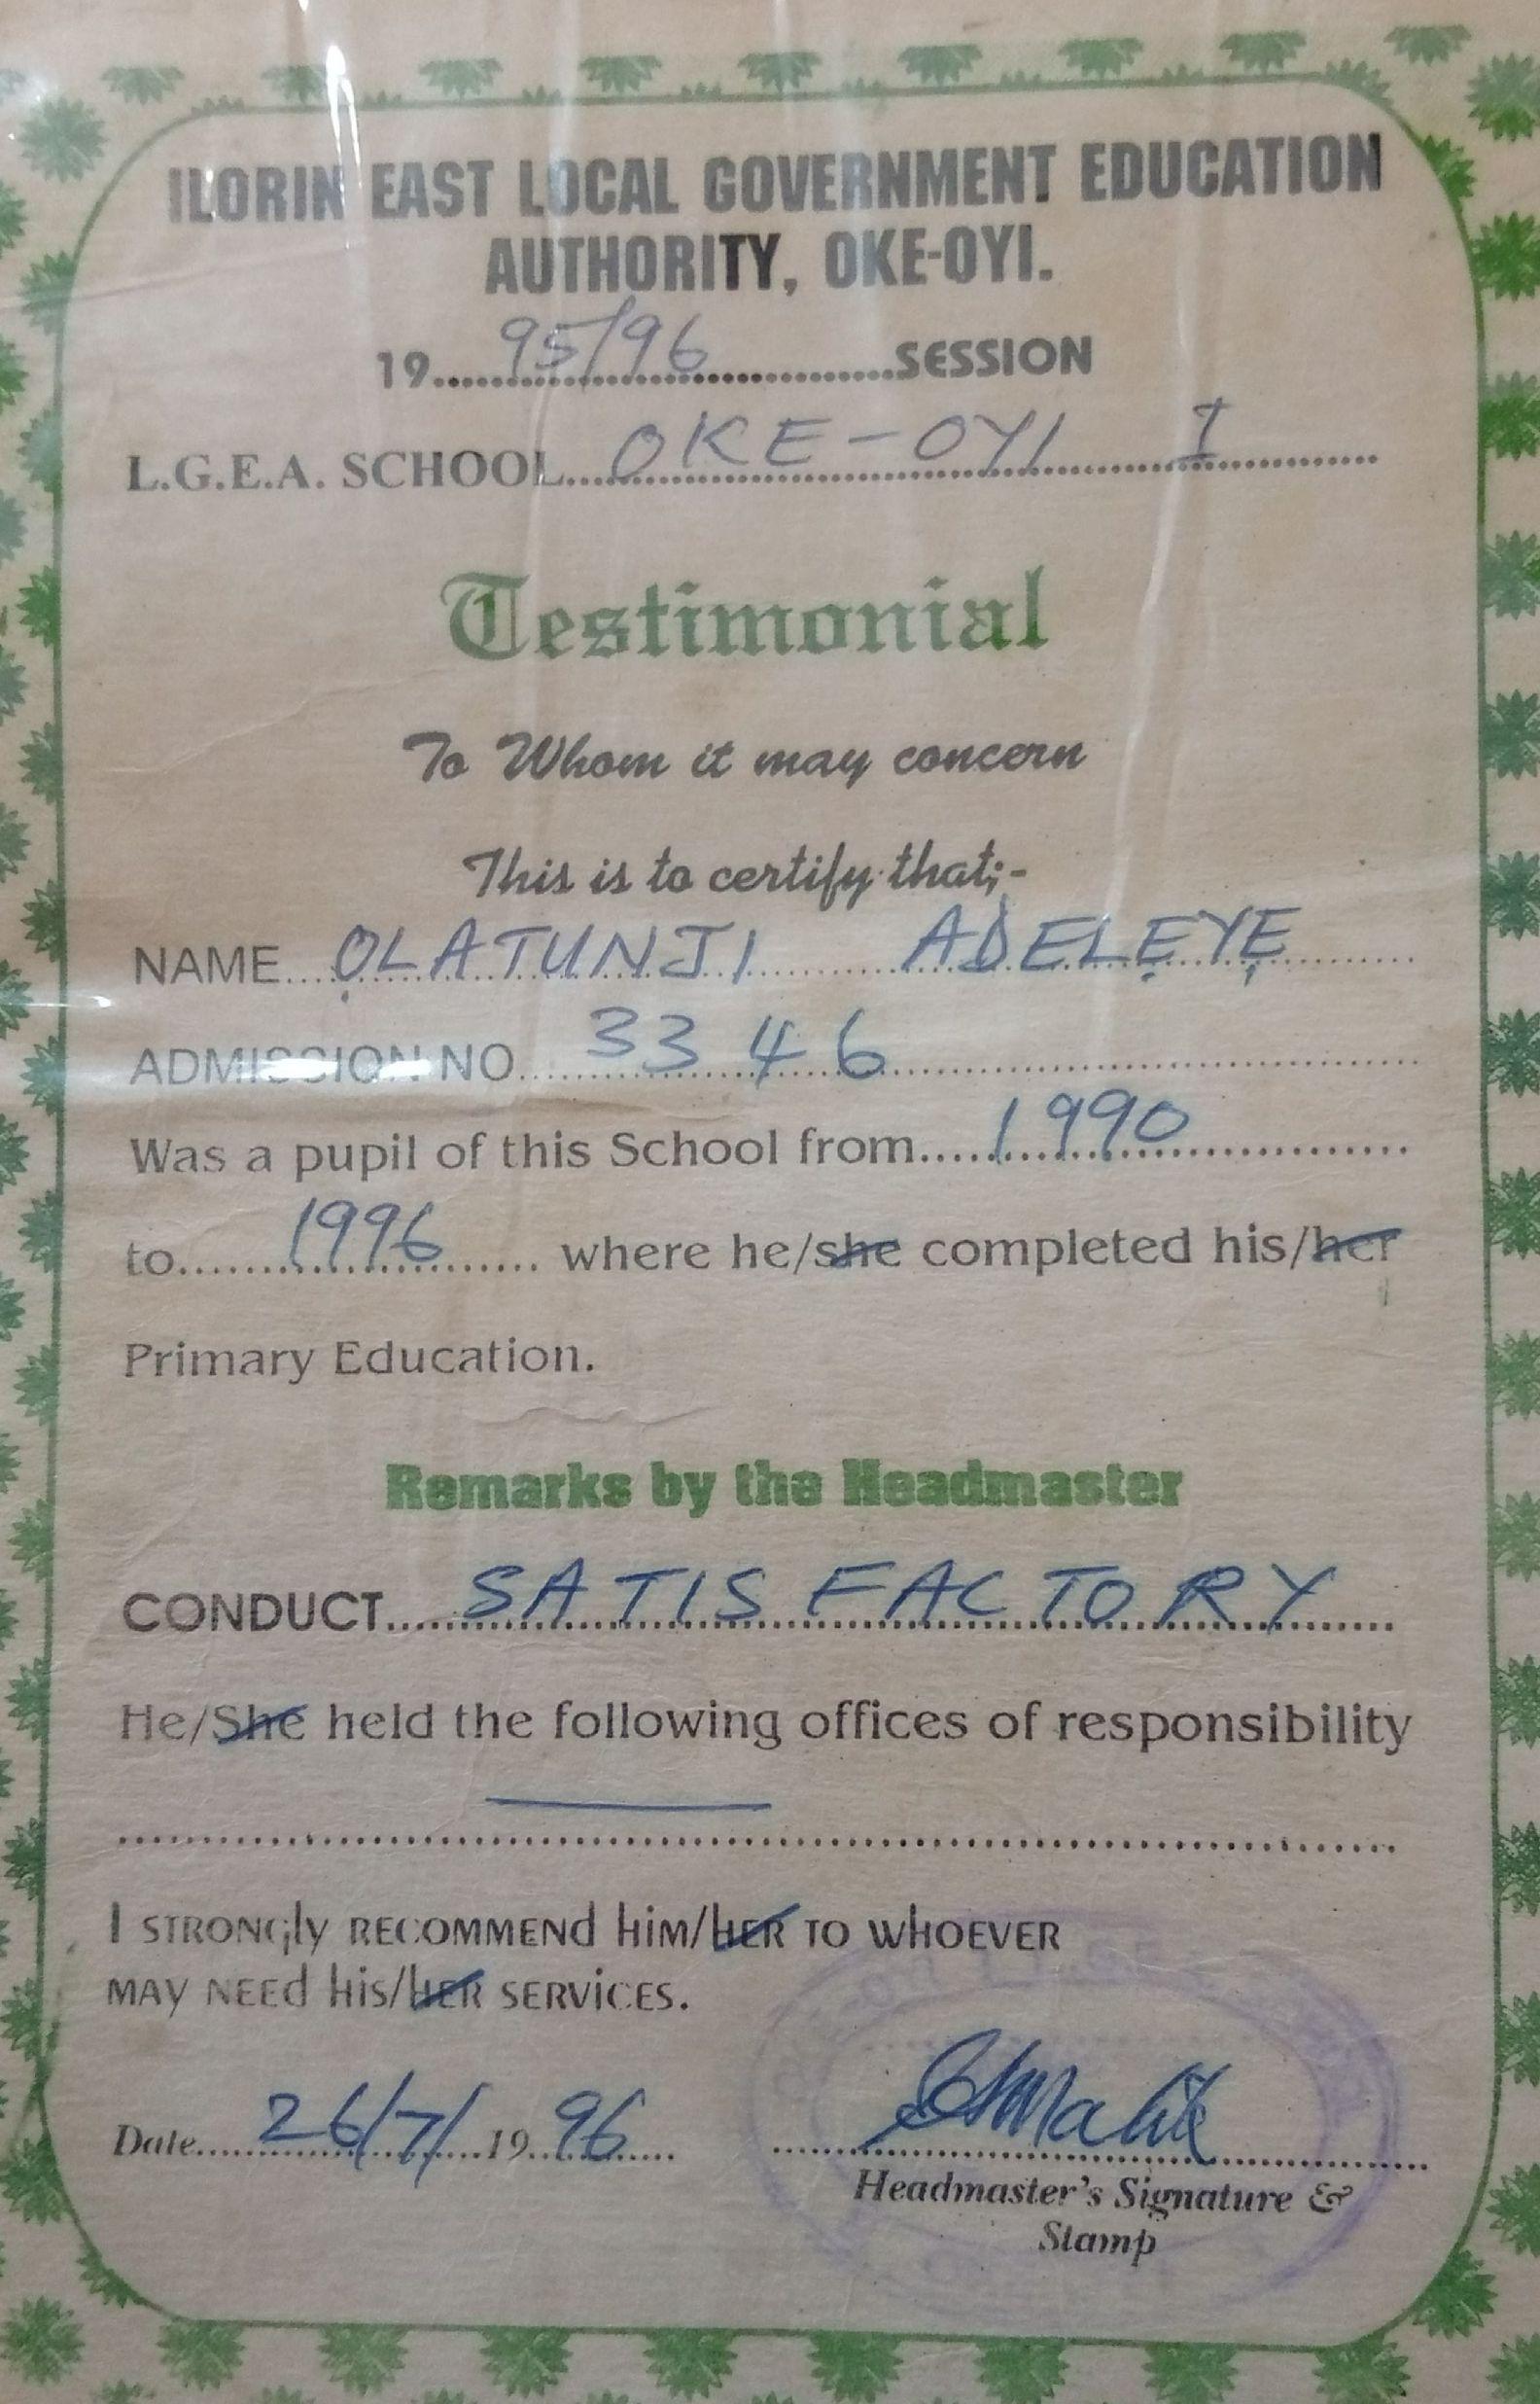 ILORIN EAST LOCAL GOVERNMENT EDUCATION
AUTHORITY, OKE-OYI.
19....95/96....SESSION
L.G.E.A. SCHOOL....OKE-OYI I....
Testimonial
To Whom it may concern
This is to certify that;-
NAME....ỌLATUNJI ADELẸYẸ....
ADMISSION NO....3346....
Was a pupil of this School from....1990....
to....1996.... where he/she completed his/her
Primary Education.
Remarks by the Headmaster
CONDUCT....SATISFACTORY....
He/She held the following offices of responsibility
I STRONGLY RECOMMEND HIM/HER TO WHOEVER
MAY NEED HIS/HER SERVICES.
Date....26/7/....19..96....
Headmaster's Signature &
Stamp